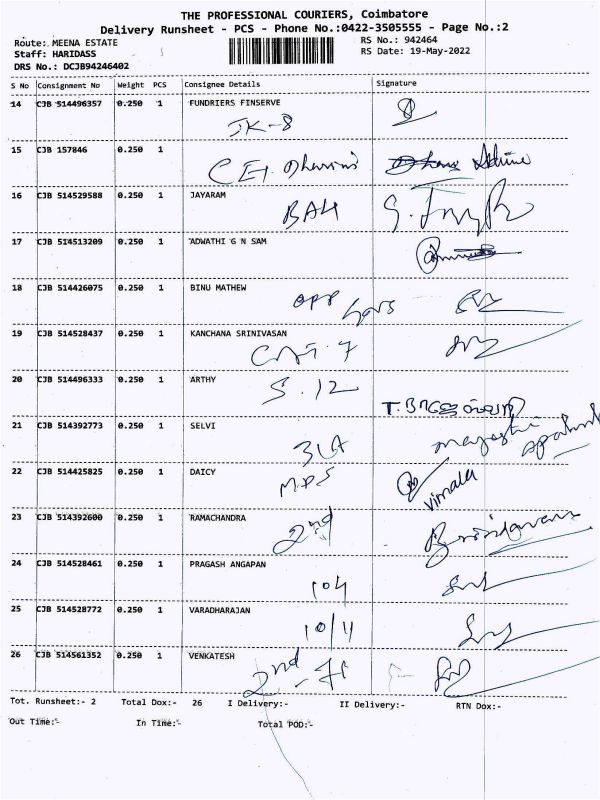 THE PROFESSIONAL COURIERS, Coimbatore
Delivery Runsheet - PCS - Phone No.:0422-3505555 - Page No.:2
Route: MEENA ESTATE RS No.: 942464
Staff: HARIDASS RS Date: 19-May-2022
DRS No.: DCJB94246402
S No Consignment No Weight PCS Consignee Details Signature
14 CJB 514496357 0.250 1 FUNDRIERS FINSERVE
JK-8
15 CJB 157846 0.250 1
16 CJB 514529588 0.250 1 JAYARAM
17 CJB 514513209 0.250 1 ADWATHI G N SAM
18 CJB 514426075 0.250 1 BINU MATHEW
OPP
19 CJB 514528437 0.250 1 KANCHANA SRINIVASAN
20 CJB 514496333 0.250 1 ARTHY
S. 12
21 CJB 514392773 0.250 1 SELVI
22 CJB 514425825 0.250 1 DAICY
Vimala
23 CJB 514392600 0.250 1 RAMACHANDRA
2nd
24 CJB 514528461 0.250 1 PRAGASH ANGAPAN
104
25 CJB 514528772 0.250 1 VARADHARAJAN
10/4
26 CJB 514561352 0.250 1 VENKATESH
2nd
Tot. Runsheet:- 2 Total Dox:- 26 I Delivery:- II Delivery:- RTN Dox:-
Out Time:- In Time:- Total POD:-